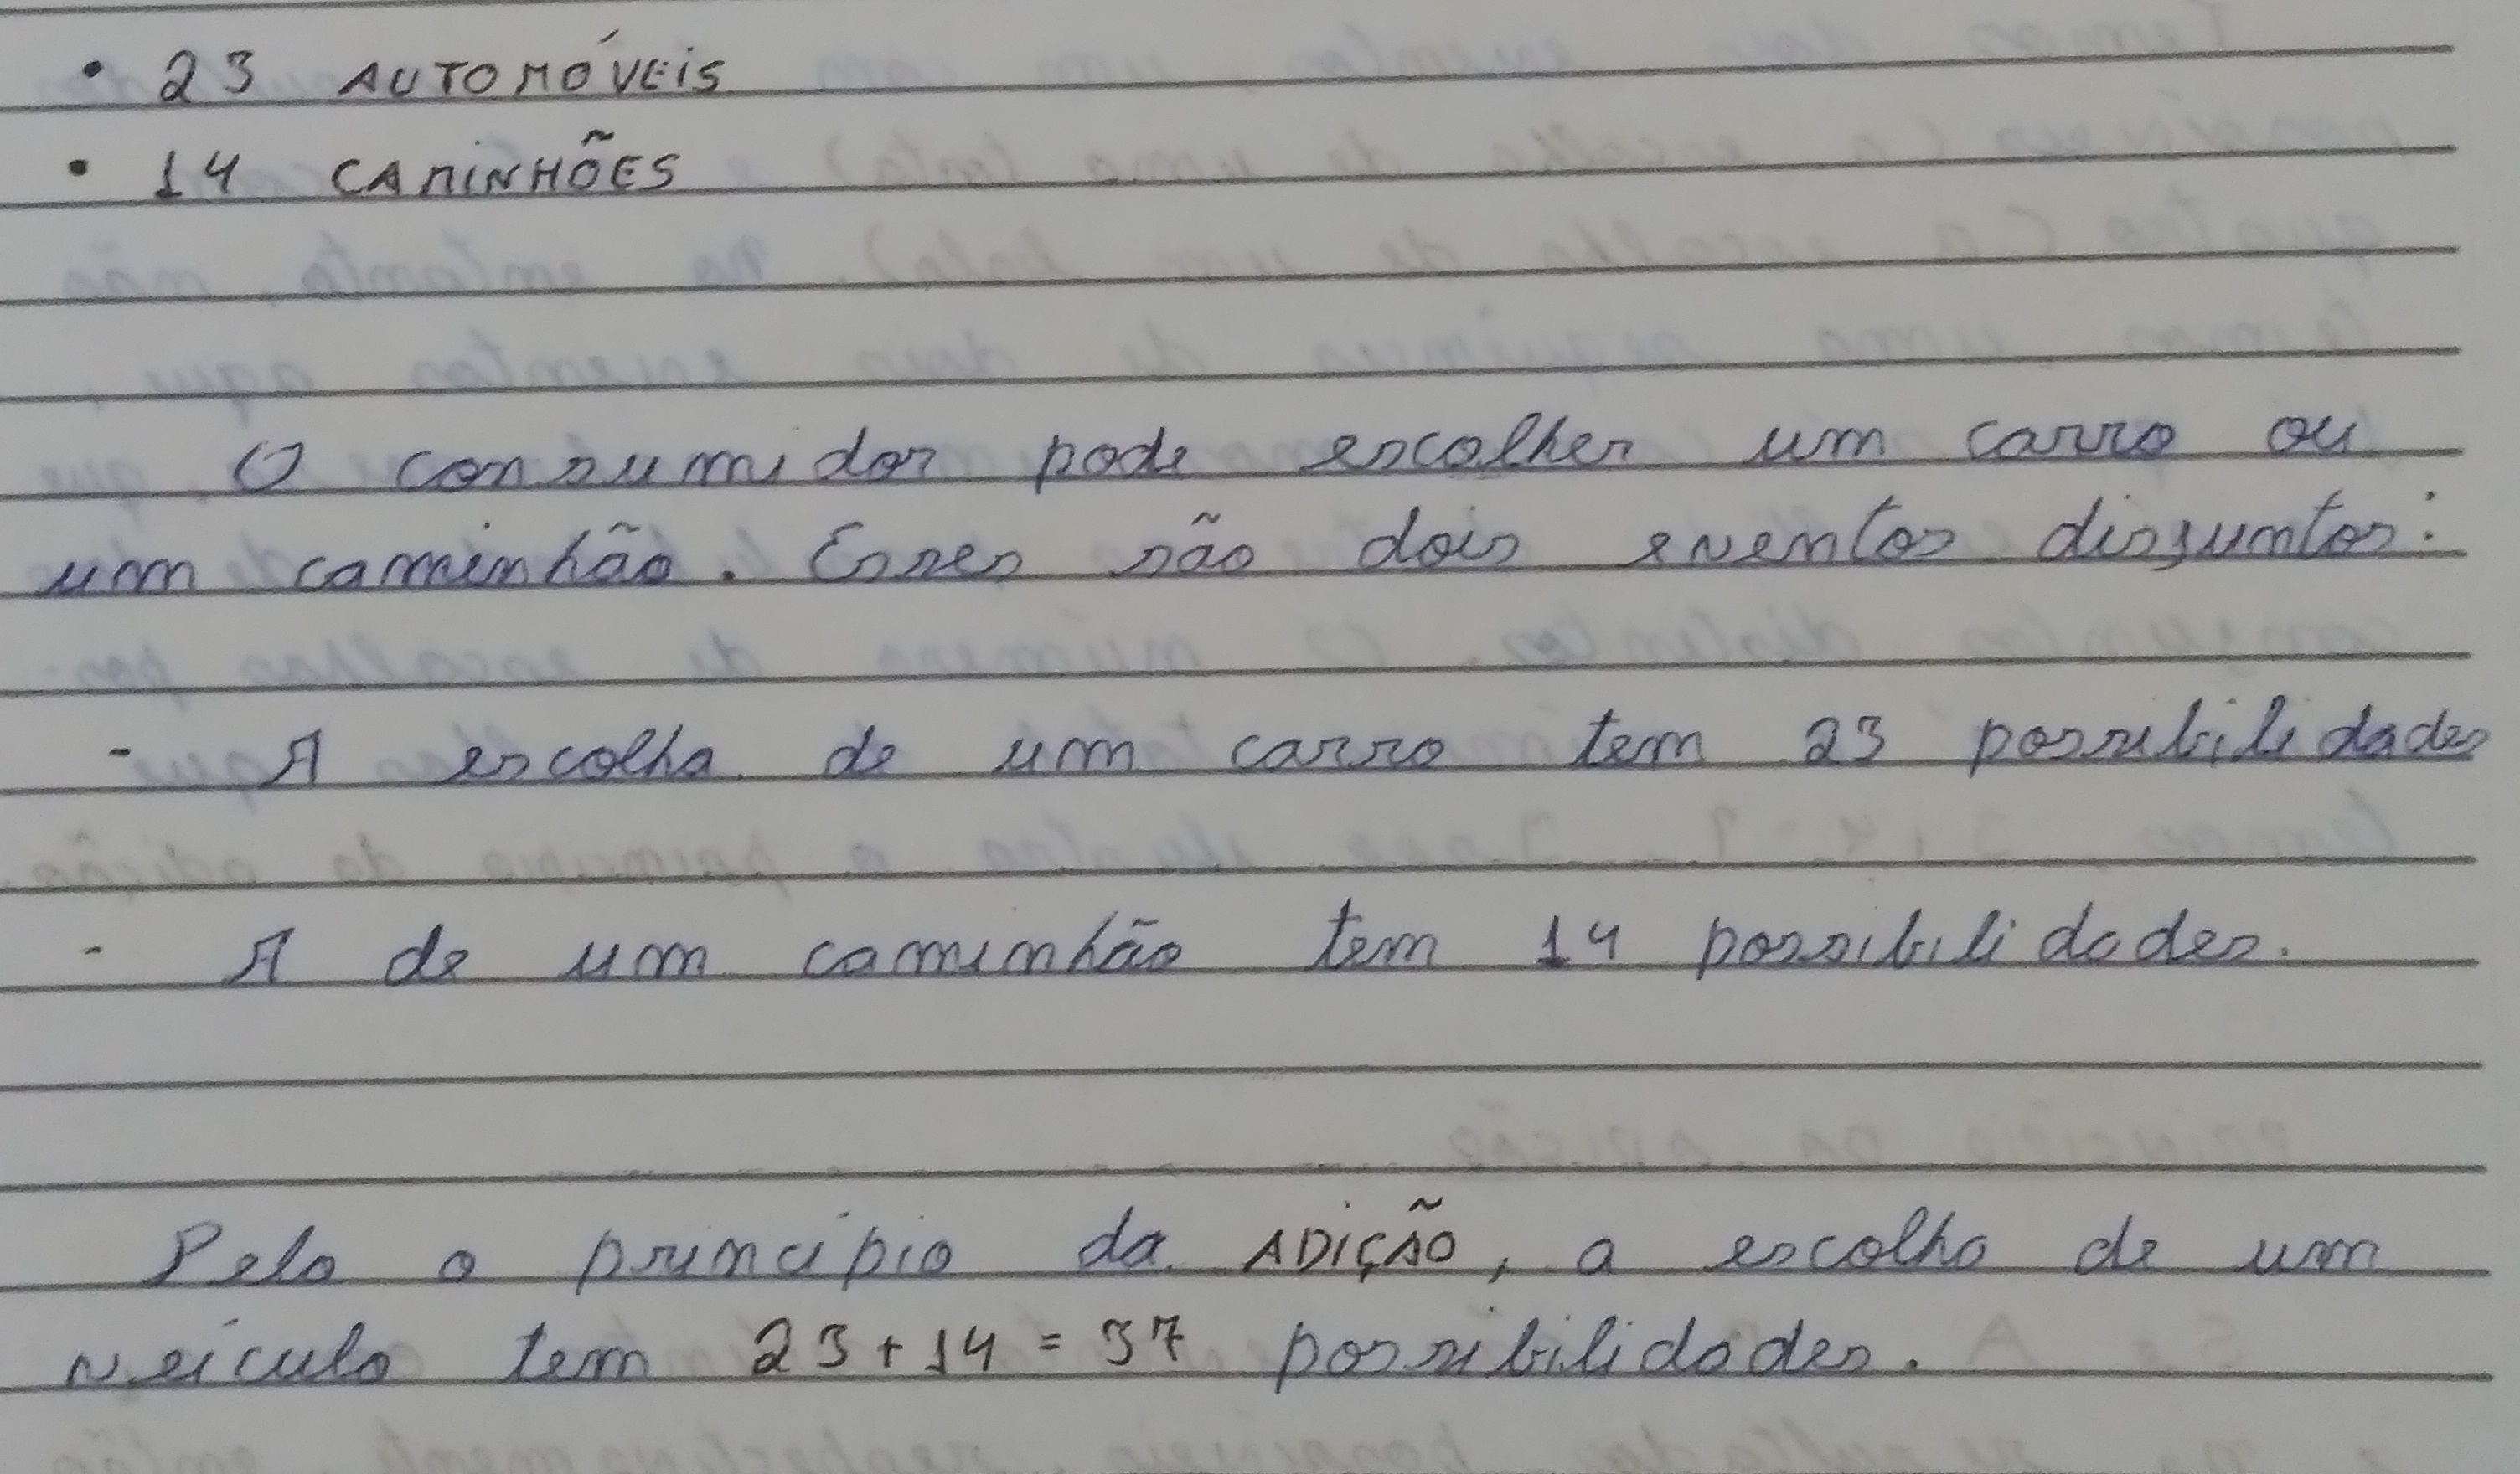 • 23 AUTOMÓVEIS
• 14 CAMINHÕES
O consumidor pode escolher um carro ou
um caminhão. Esses são dois eventos disjuntos:
- A escolha de um carro tem 23 possibilidades
- A de um caminhão tem 14 possibilidades.
Pelo o princípio da ADIÇÃO, a escolha de um
veículo tem 23 + 14 = 37 possibilidades.